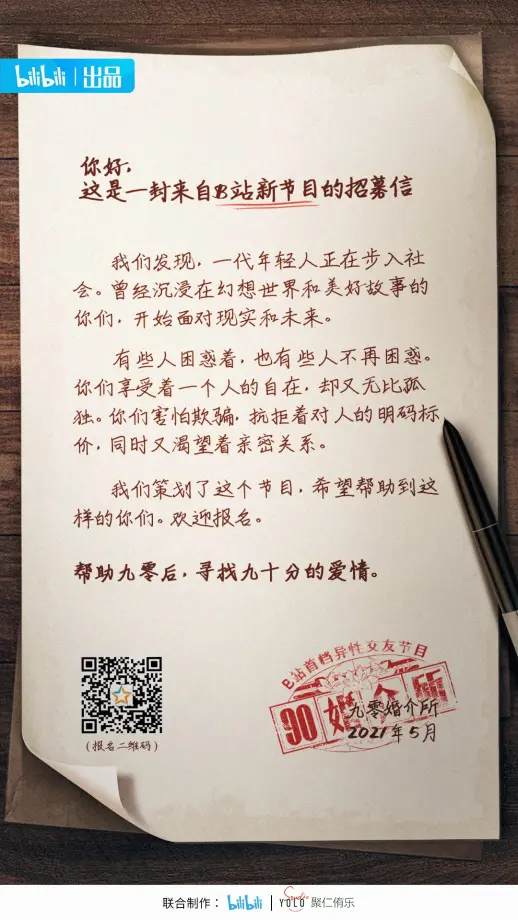 bilibili 出品
你好，
这是一封来自B站新节目的招募信
我们发现，一代年轻人正在步入社
会。曾经沉浸在幻想世界和美好故事的
你们，开始面对现实和未来。
有些人困惑着，也有些人不再困惑。
你们享受着一个人的自在，却又无比孤
独。你们害怕欺骗，抗拒着对人的明码标
价，同时又渴望着亲密关系。
我们策划了这个节目，希望帮助到这
样的你们。欢迎报名。
帮助九零后，寻找九十分的爱情。
（报名二维码）
B站首档异性交友节目
90婚介所
九零婚介所
2021年5月
联合制作： bilibili | Studio YOLO 聚仁侑乐